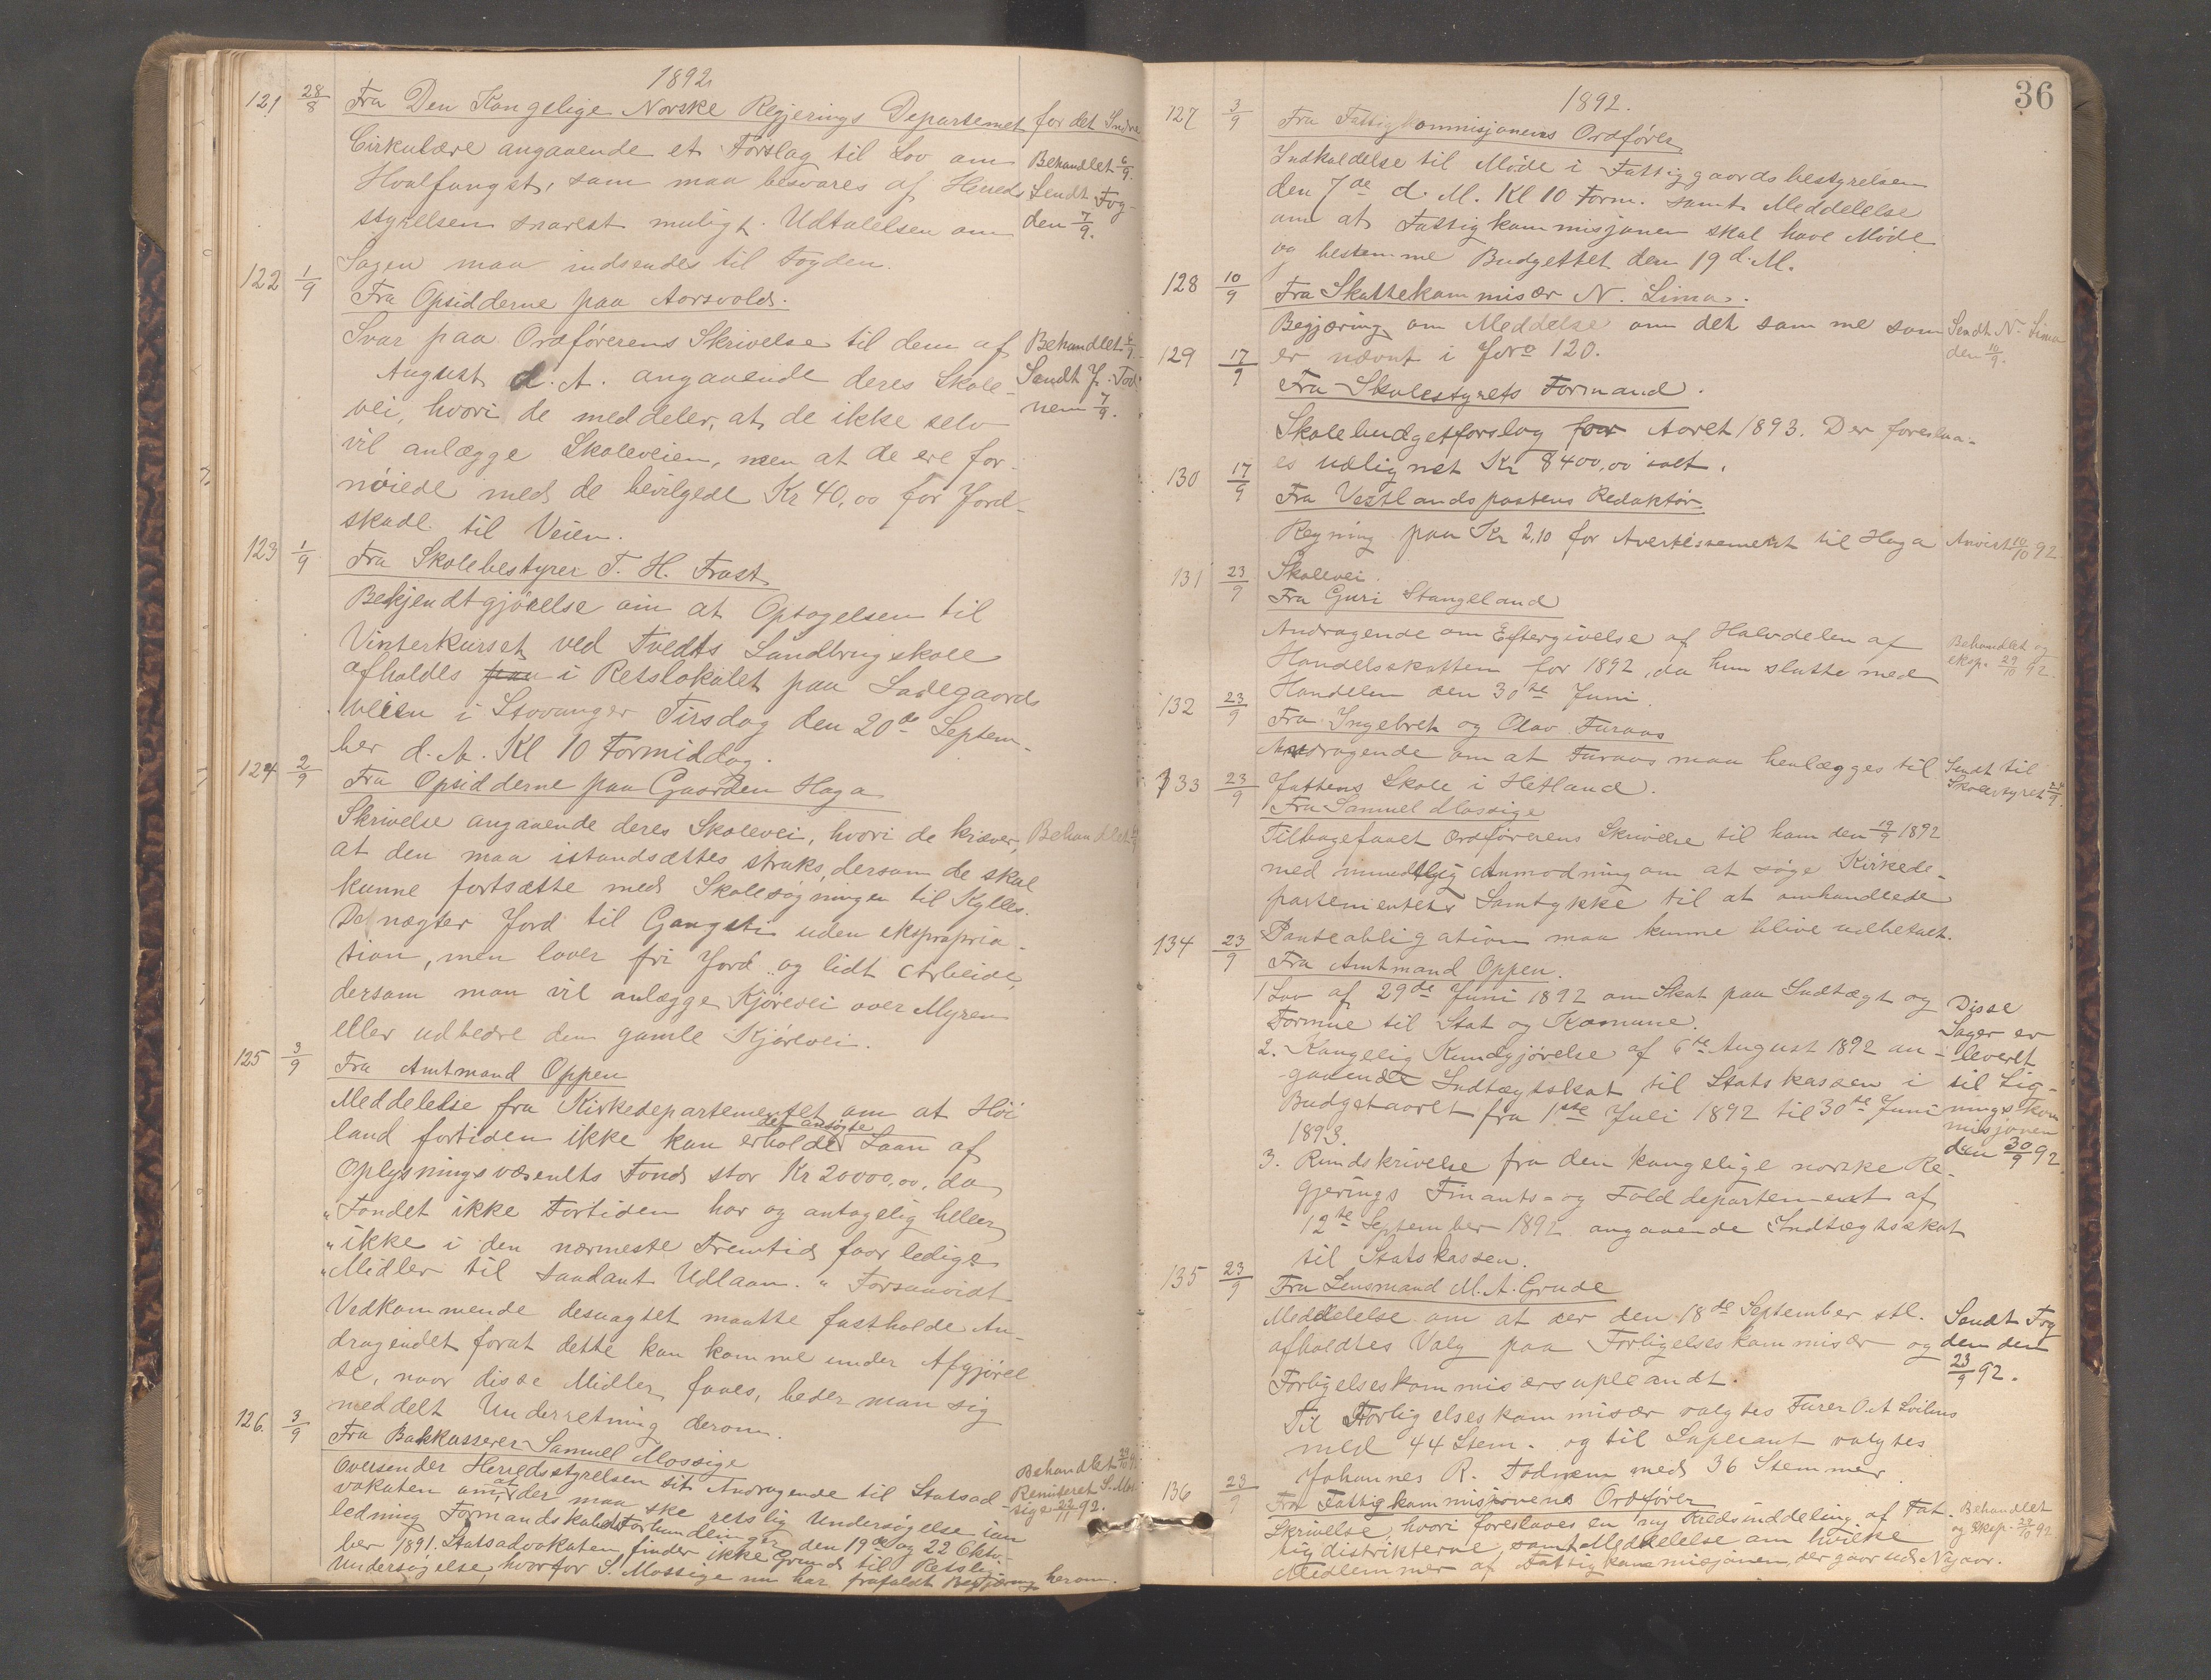 1892
121 28/8 Fra Den Kongelige Norske Regjerings Departemet for det Indre
Cirkulære angaaende et Forslag til Lov om Behandlet 6/9.
Hvalfangst, som maa besvares af Hereds Sendt Fog-
styrelsen snarest muligt. Udtalelsen om den 7/9.
Sagen maa indsendes til Fogden.
122 1/9 Fra Opsidderne paa Aarsvold.
Svar paa Ordførerens Skrivelse til dem af Behandlet 6/9
August d. A. angaaende deres Skole- Sendt J. Tod-
vei, hvori de meddeler, at de ikke selv nem 7/9.
vil anlægge Skoleveien, men at de ere for-
nøiede med de bevilgede Kr 40,00 for Jord-
skade til Veien.
123 1/9 Fra Skolebestyrer T. H. Frost
Bekjendtgjørelse om at Optagelsen til
Vinterkurset ved Tvedts Landbrugskole
afholdes paa i Retslokalet paa Ladegaards
veien i Stavanger Tirsdag den 20de Septem-
ber d. A. Kl 10 Formiddag.
124 2/9 Fra Opsidderne paa Gaarden Haga
Skrivelse angaaende deres Skolevei, hvori de kræver, Behandlet
at den maa istandsættes straks, dersom de skal
kunne fortsætte med Skolesøgningen til Kylles.
De nægter Jord til Gangsti uden ekspropria-
tion, men lover fri Jord og lidt Arbeide,
dersom man vil anlægge Kjørevei over Myren
eller udbedre den gamle Kjørevei.
125 3/9 Fra Amtmand Oppen
Meddelelse fra Kirkedepartementet om at Høi
det ansøgte
land fortiden ikke kan erholde Laan af
Oplysningsvæsenets Fond stor Kr 20000,00, da
"Fondet ikke Fortiden har og antagelig heller
"ikke i den nærmeste Fremtid faar ledige
"Midler til saadant Udlaan." Forsaavidt
Vedkommende desuagtet maatte fastholde An-
dragendet forat dette kan komme under Afgjørel
se, naar disse Midler faaes, beder man sig
meddelt Underretning derom.
126. 3/9 Fra Bankkasserer Samuel Mossige
Oversender Herredsstyrelsen sit Andragende til Statsad- Behandlet
vokaten om, at der maa ske retslig Undersøgelse i an Remiteret S. Mos
ledning Formandskabets Forhandlinger den 19de og 22 Okto- sige 92.
ber 1891. Statsadvokaten finder ikke Grund til Retslig
Undersøgelse, hvorfor S. Mossige nu har frafaldt Begjæring herom.
36
1892.
127 3/9 Fra Fattigkommisjonens Ordfører
Indkaldelse til Møde i Fattiggaardsbestyrelsen
den 7de d. M. Kl 10 Form. samt Meddelelse
om at Fattigkommisjonen skal have Møde
og bestemme Budgettet den 19 d. M.
128 10/9 Fra Skattekommisær N. Lima.
Begjæring om Meddelse om det samme som Sendt N. Lima
er nævnt i J No 120. den 10/9.
129 17/9 Fra Skolestyrets Formand.
Skolebudgetforslag for Aaret 1893. Der foreslaa-
es udlignet Kr 8400,00 ialt.
130 17/9 Fra Vestlandspostens Redaktør
Regning paa Kr 2,10 for Avertissement til Haga Anvist 10/10 92
Skolevei.
131 23/9 Fra Guri Stangeland
Andragende om Eftergivelse af Halvdelen af Behandlet og
Handelsskatten for 1892, da hun slutte med eksp. 29/10 92.
Handelen den 30te Juni.
132 23/9 Fra Ingebret og Olav Furaas
Andragende om at Furaas maa henlægges til Sendt til
Jattens Skole i Hetland. Skolestyret
133 23/9 Fra Samuel Mossige
Tilbagefaaet Ordførerens Skrivelse til ham den 19/9 1892
med mundtlig Anmodning om at søge Kirkede-
partementets Samtykke til at omhandlede
Panteobligation maa kunne blive udbetalt.
134 23/9 Fra Amtmand Oppen.
1 Lov af 29de Juni 1892 om Skat paa Indtægt og Disse
Formue til Stat og Komune. Sager er
2. Kongelig Kundgjørelse af 6te August 1892 an- leveret
gaaende Indtægtsskat til Statskassen i til Lig-
Budgetaaret fra 1ste Juli 1892 til 30te Juni ningskom
1893. misjonen
3. Rundskrivelse fra den kongelige norske Re- den 30/9 92.
gjerings Finants- og Tolddepartement af
12te September 1892 angaaende Indtægtsskat
til Statskassen.
135 23/9 Fra Lensmand M. A. Grude
Meddelelse om at der den 18de September stl. Sendt Fog
afholdtes Valg paa Forligelseskommisær og den den
Forligelseskommisærsupleandt. 23/9 92.
Til Forligelseskommisær valgtes Furer O. A Lvilms
med 44 Stem. og til Supleant valgtes
Johannes R. Todnem med 36 Stemmer.
136 23/9 Fra Fattigkommisjonens Ordfører
Skrivelse, hvori foreslaaes en ny Kredsinddeling af Fat- Behandlet
tigdistrikterne samt Meddelelse om hvilke og Eksp. 29/10 92
Medlemmer af Fattigkommisjonen, der gaar ud Nyaar.